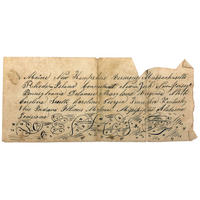 Maine New Hampshire Vermont Massachusetts
Rhode Island Connecticut New York New Jersey
Pennsylvania Delaware Maryland Virginia North
Carolina South Carolina Georgia Tennessee Kentucky
Ohio Indiana Illinois Missouri Mississippi Alabama
Louisiana